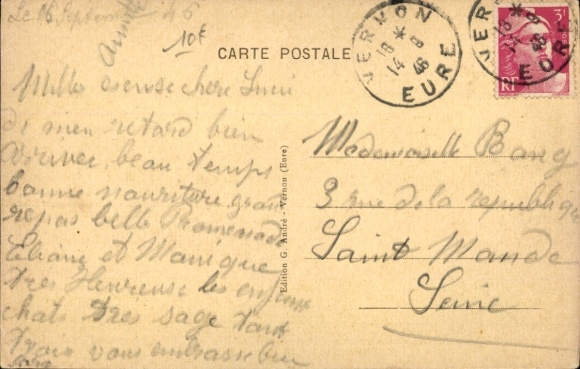 Le 16 Septembre 46
10F
CARTE POSTALE
VERNON
18 *
14 - 8
46
EURE
VERNON
18 *
14 - 8
46
EURE
3F
RF
Milles excuse chere Luci
di mon retard bien
arriver beau temps
bonne nouriture grand
repas belle Promenade
Eliane et Monique
tres Heureuse les enfants
chats tres sage tant
vous embrasse bien
Mademoiselle Bang
3 rue de la republique
Saint Mande
Seine
Edition G. André - Vernon (Eure)